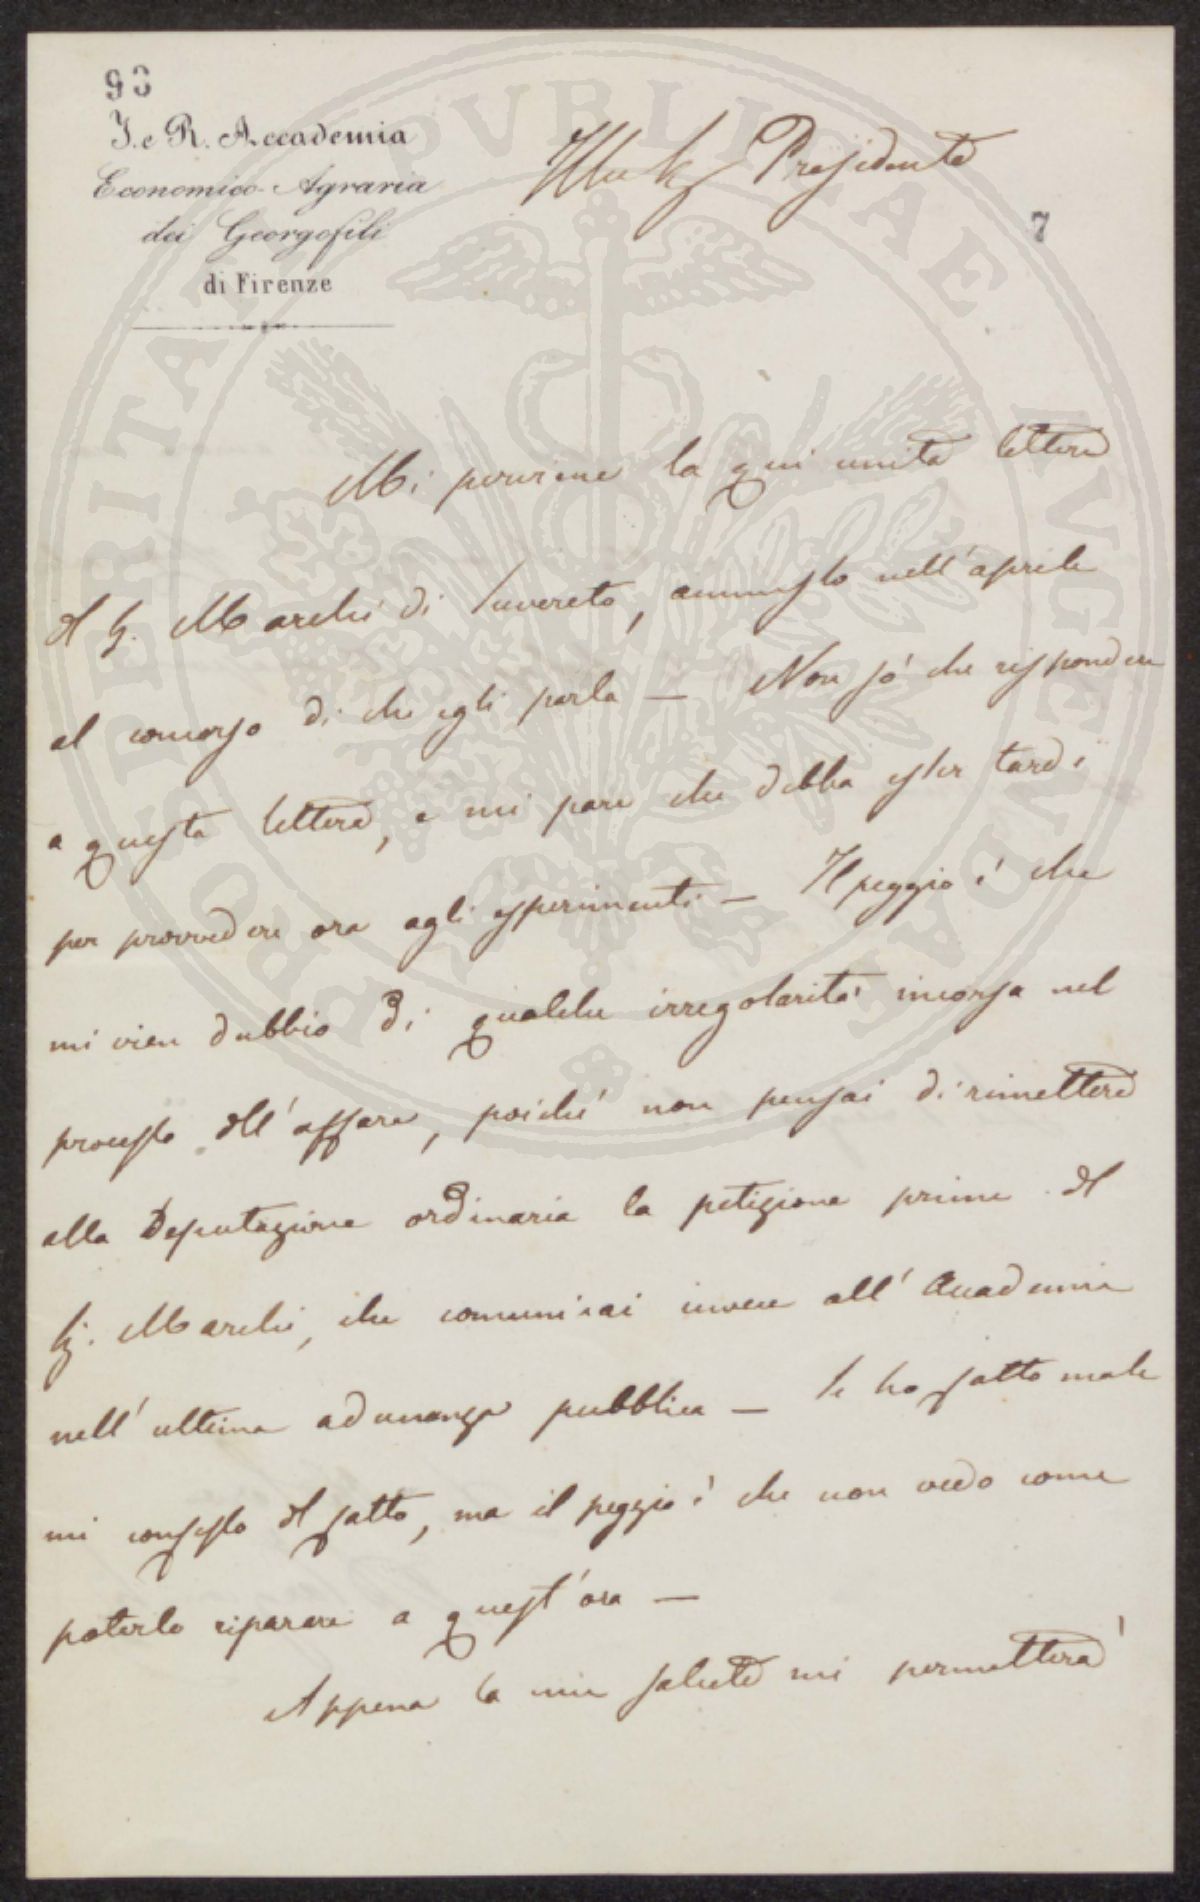 93
I. e R. Accademia
Economico-Agraria
dei Georgofili
di Firenze
Presidente
7
PROSPERITATI PVBLICAE AVGENDAE
Mi perviene la qui unita lettera
del Sig. Marchi di Suvereto, ammesso nell'aprile
al concorso di che egli parla — Non só che rispondere
a questa lettera, e mi pare che debba esser tardi
per provvedere ora agli esperimenti — Il peggio é che
mi vien dubbio di qualche irregolarità incorsa nel
processo dell'affare, poiché non pensai di rimettere
alla Deputazione ordinaria la petizione prima del
Sig. Marchi, che comunicai invece all'Accademia
nell'ultima adunanza pubblica — Se ho fatto male
mi confesso del fatto, ma il peggio é che non vedo come
poterlo riparare a quest'ora —
Appena la mia salute mi permetterà